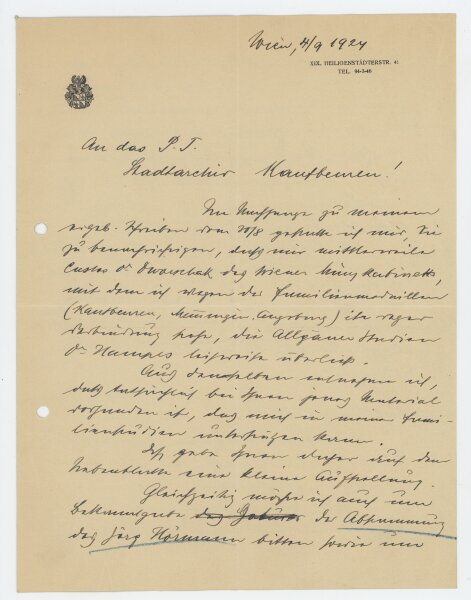 Wien, 4/9 1924
XIX. HEILIGENSTÄDTERSTR. 4
TEL. 94-3-46
An das P. T.
Stadtarchiv Kaufbeuren!
Im Nachhange zu meinem
ergeb. Schreiben vom 20/8 gestatte ich mir, Sie
zu benachrichtigen, daß mir mittlerweile
Custos Dr Dworschak des Wiener Münzkabinetts,
mit dem ich wegen der Familienmedaillen
(Kaufbeuren, Memmingen, Augsburg) in reger
Verbindung stehe, die Allgäuer Studien
Dr Hampes leihweise überließ.
Aus denselben entnehme ich,
daß tatsächlich bei Ihnen Material
vorhanden ist, das mich in meinen Fami-
lienstudien unterstützen kann.
Ich gebe Ihnen daher auf dem
Nebenblatte eine kleine Aufstellung.
Gleichzeitig möchte ich auch um
Bekanntgabe der Abstammung
des Jörg Hörmann bitten sowie um